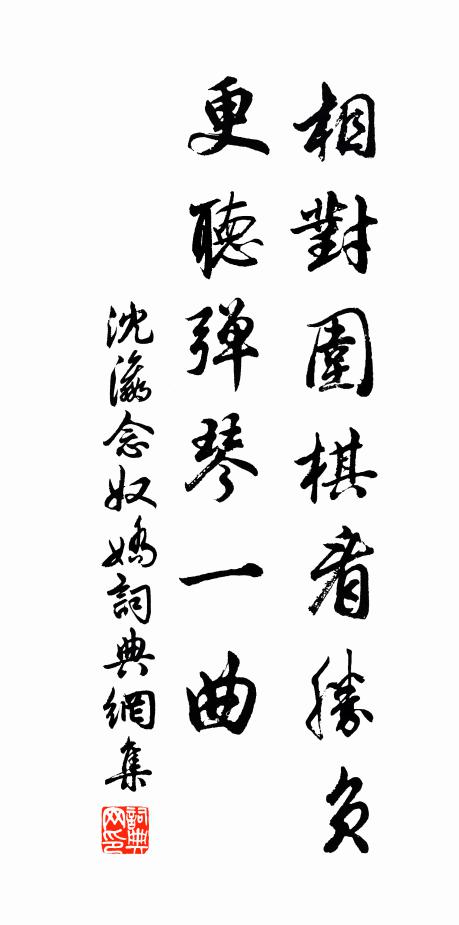 相對圍棋看勝負
更聽弹琴一曲
沈瀛念奴嬌詞典網集
詞典网印